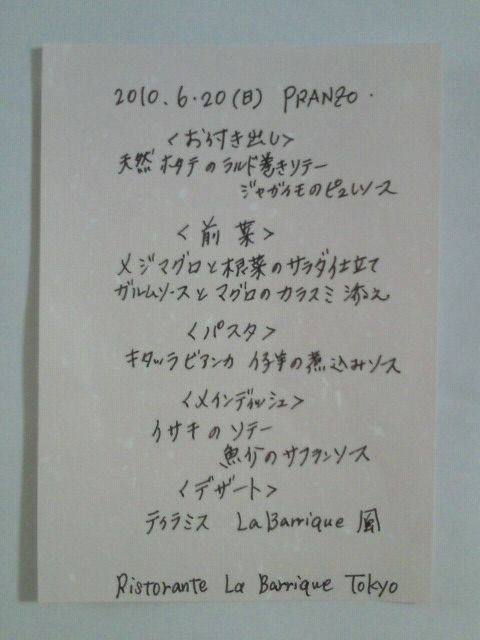 2010.6.20(日) PRANZO.
<お付き出し>
天然ホタテのラルド巻きソテー
ジャガイモのピュレソース
<前菜>
メジマグロと根菜のサラダ仕立て
ガルムソースとマグロのカラスミ添え
<パスタ>
キタッラビアンカ 仔羊の煮込みソース
<メインディッシュ>
イサキのソテー
魚介のサフランソース
<デザート>
ティラミス La Barrique 風
Ristorante La Barrique Tokyo